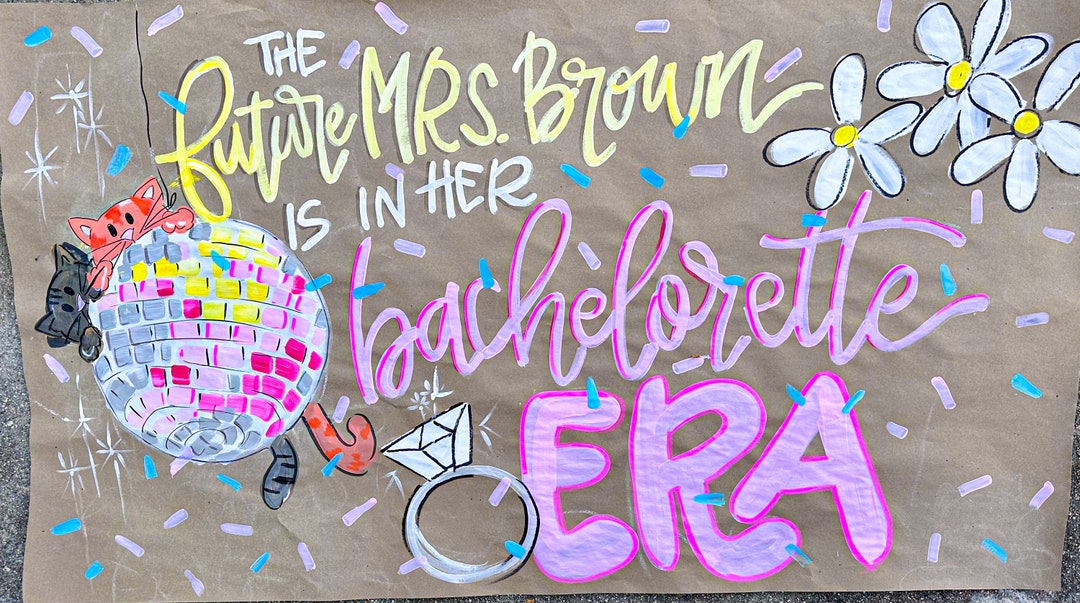 THE
future MRS. Brown
IS IN HER
bachelorette
ERA